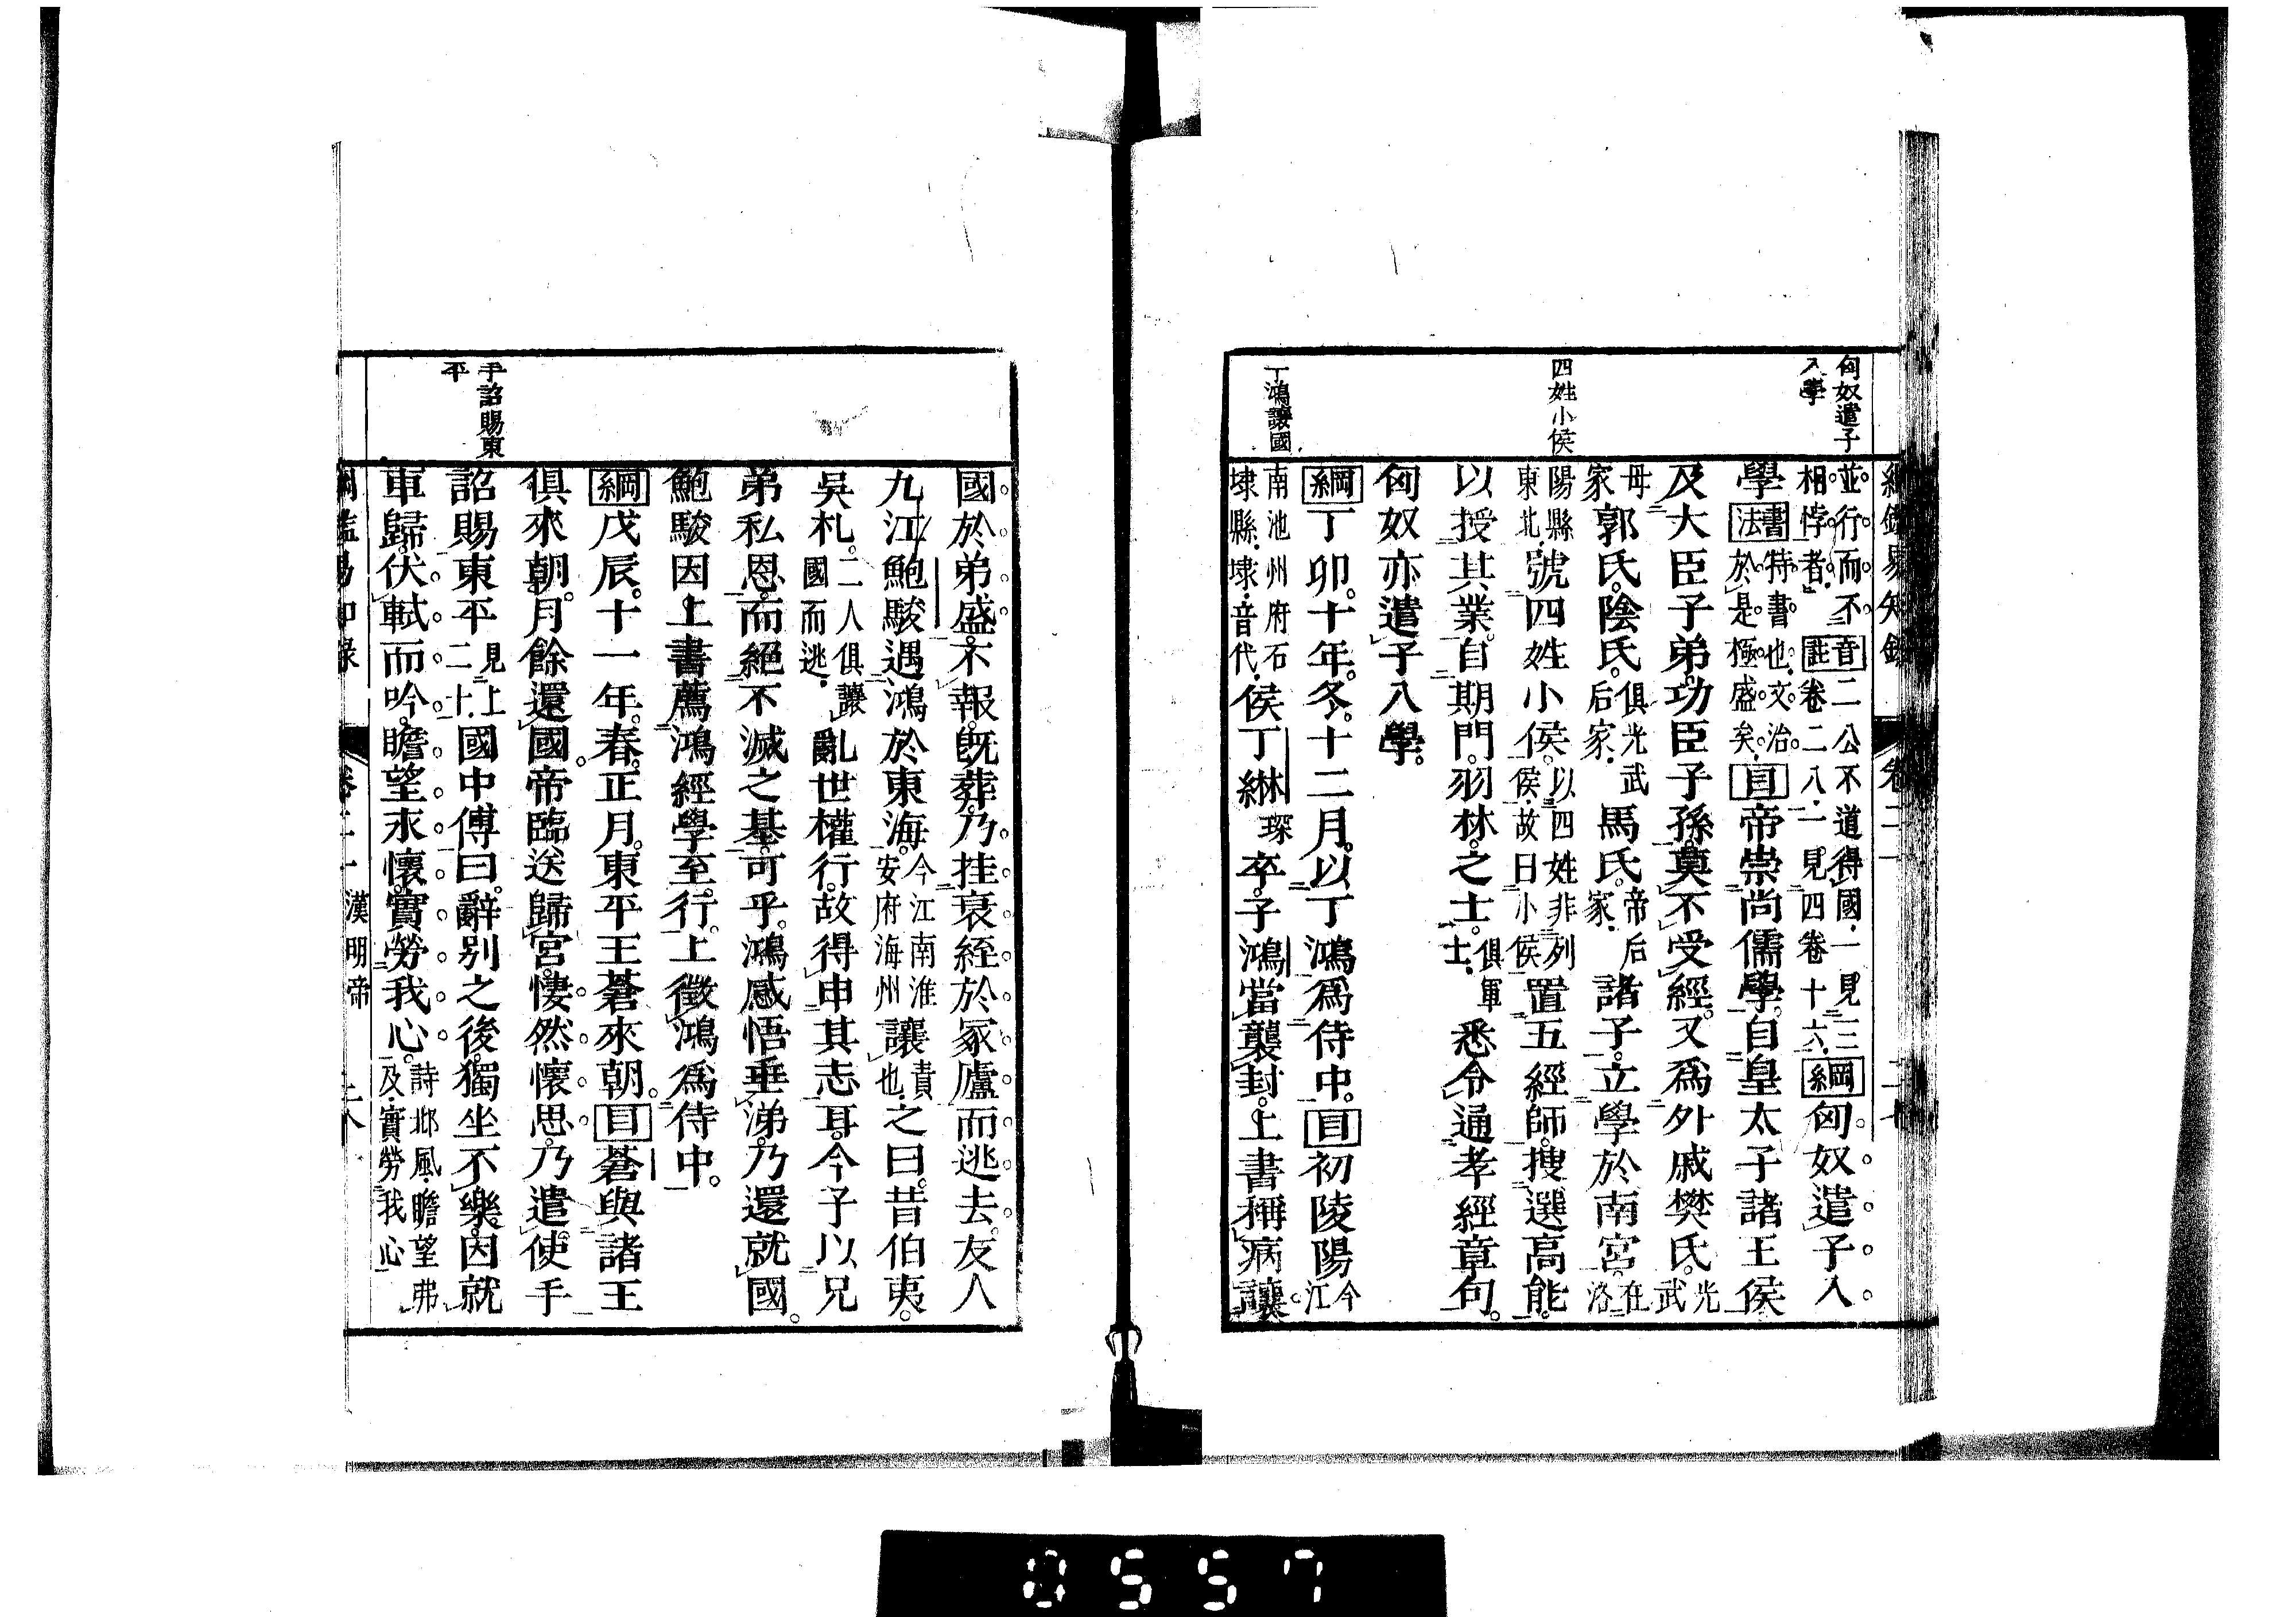 匈奴遣子
入學
四姓小侯
丁鴻讓國
並行而不
相悖者。音註二公不道得國、一見三卷二八、一見四卷十六、綱匈奴遣子入
學書法特書也、文治於是極盛矣、目帝崇尚儒學。自皇太子諸王侯
及大臣子弟。功臣子孫。莫不受經。又爲外戚樊氏。光武
母家郭氏。陰氏。俱光武后家、馬氏。帝后家、諸子。立學於南宮。在洛
陽縣東北、號四姓小侯。以四姓非列侯、故曰小侯置五經師。搜選高能。
以授其業。自期門。羽林。之士。俱軍士、悉令通孝經章句。
匈奴亦遣子入學。
綱丁卯。十年。冬。十二月。以丁鴻爲侍中。目初陵陽今江
南池州府石埭縣、埭音代、侯丁綝琛卒。子鴻當襲封。上書稱病讓
國於弟盛。不報。旣葬。乃挂衰絰於冢廬而逃去。友人
九江鮑駿遇鴻於東海。今江南淮安府海州讓責也、之曰。昔伯夷。
吳札。二人俱讓國而逃、亂世權行。故得申其志耳。今子以兄
弟私恩。而絕不滅之基。可乎。鴻感悟垂涕。乃還就國。
鮑駿因上書薦鴻經學至行。上徵鴻爲侍中。
綱戊辰。十一年。春。正月。東平王蒼來朝。目蒼與諸王
俱來朝。月餘還國。帝臨送歸宮。悽然懷思。乃遣使手
詔賜東平見上二十、國中傅曰。辭別之後。獨坐不樂。因就
車歸。伏軾而吟。瞻望永懷。實勞我心。詩邶風、瞻望弗及、實勞我心
手詔賜東
平
漢明帝